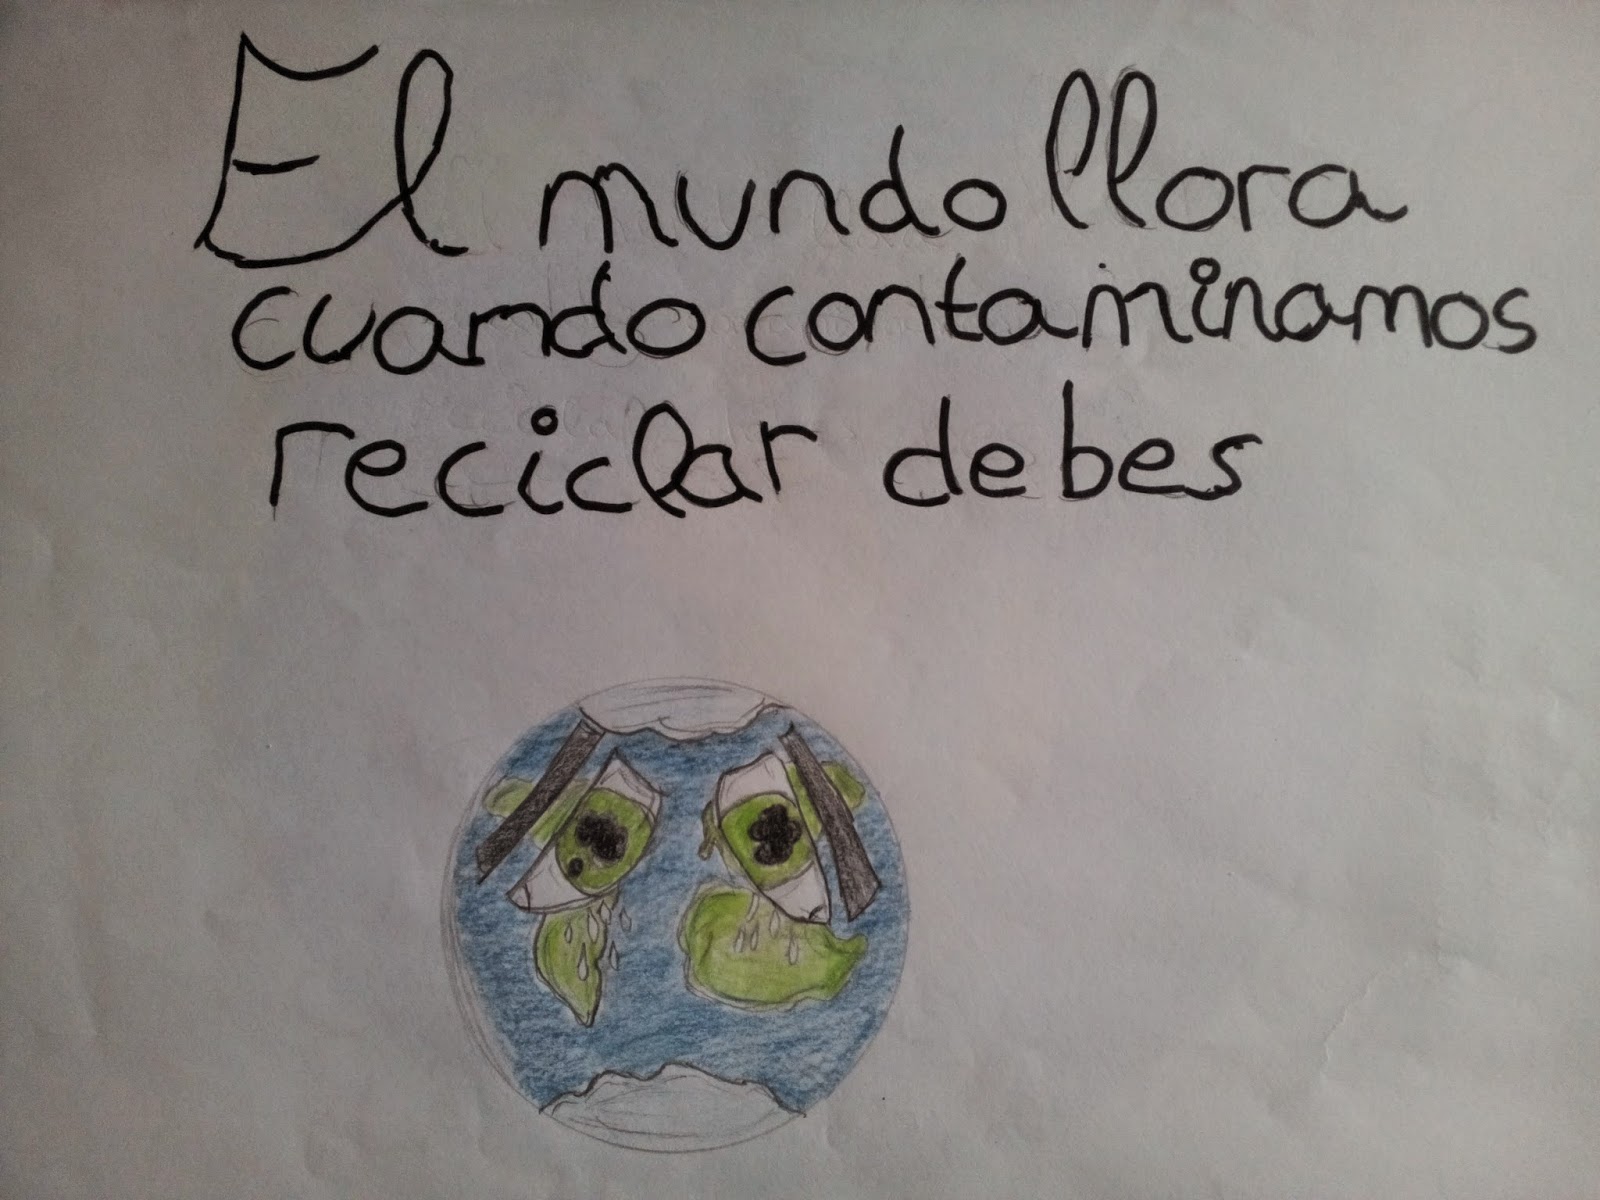 El mundo llora
cuando contaminamos
reciclar debes